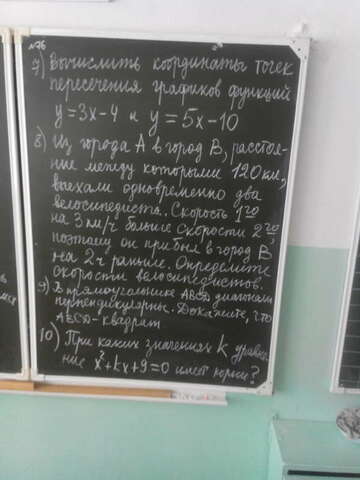 7) Вычислить координаты точек
пересечения графиков функций
y=3x-4 и y=5x-10
8) Из города А в город В, расстоя-
ние между которыми 120 км,
выехали одновременно два
велосипедиста. Скорость 1го
на 3 км/ч больше скорости 2го,
поэтому он прибыл в город В
на 2 ч раньше. Определите
скорости велосипедистов.
9) В прямоугольнике ABCD диагонали
перпендикулярны. Докажите, что
ABCD-квадрат
10) При каких значениях k уравне-
ние x²+kx+9=0 имеет корни?